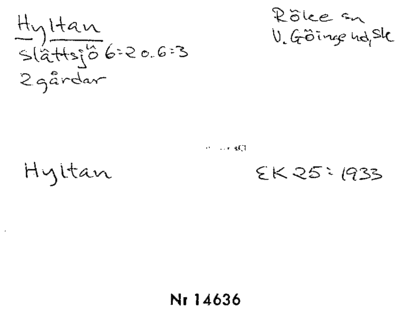 Hyltan
Röke sn
V. Göinge hd, Sk
Slättsjö 6:2 o. 6:3
2 gårdar
Hyltan
EK 25:1933
Nr 14636